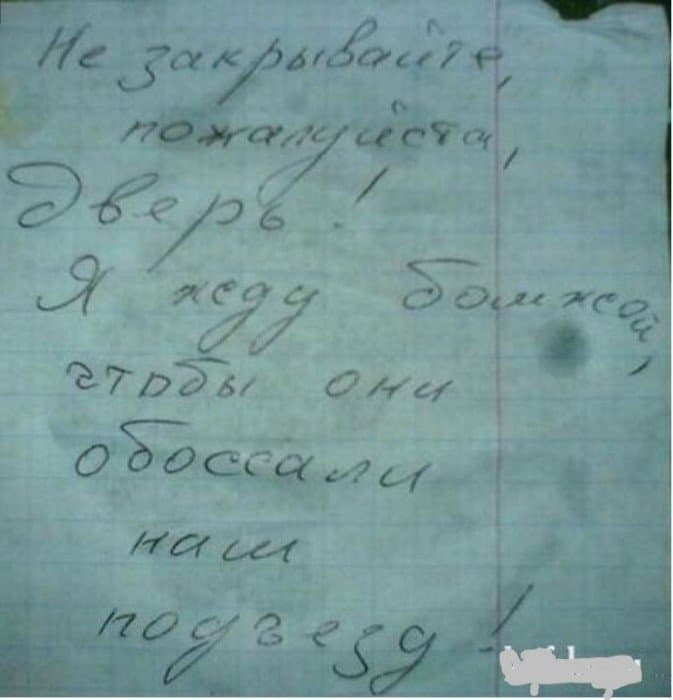 Не закрывайте,
пожалуйста,
Дверь!
Я жду бомжой,
чтобы они
обоссали
наш
подъезд!